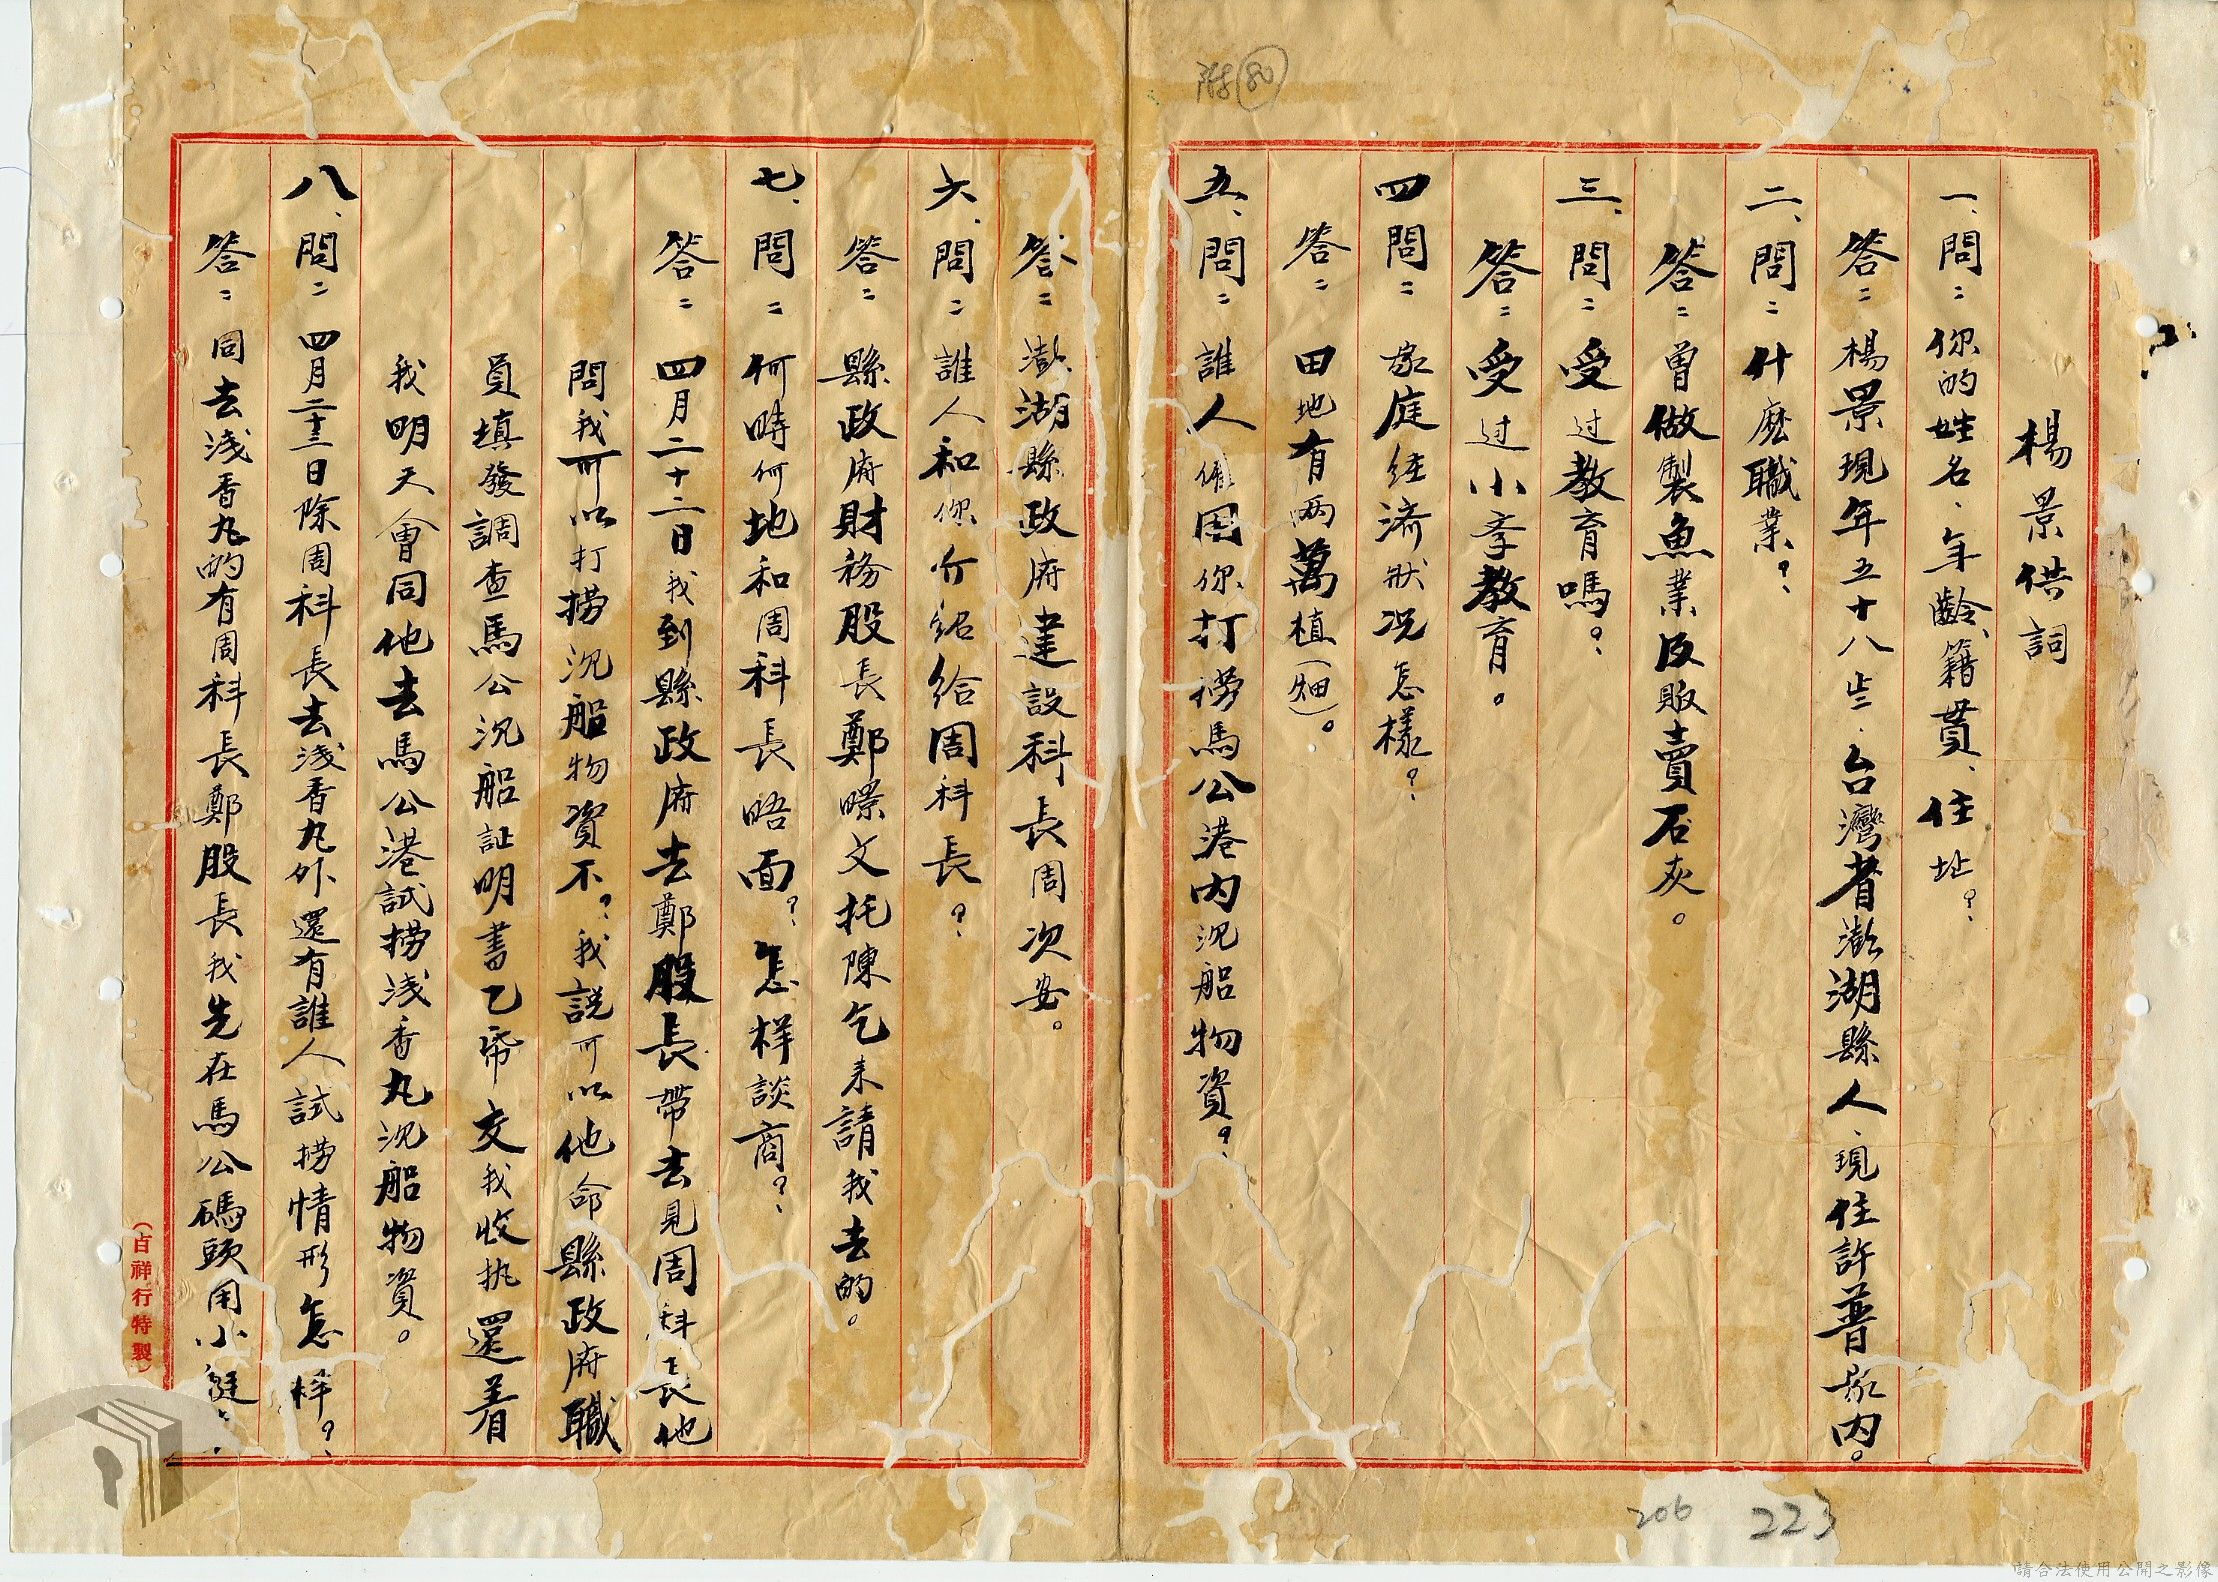 附80
楊景供詞
一、問：你的姓名、年齡、籍貫、住址？
答：楊景現年五十八歲、台灣省澎湖縣人、現住許普家內。
二、問：什麽職業？
答：曾做製魚業及販賣石灰。
三、問：受过教育嗎？
答：受过小学教育。
四問：家庭経済狀况怎樣？
答：田地有两萬植（畑）。
五、問：誰人僱用你打撈馬公港內沉船物資？
答：澎湖縣政府建設科長周次安。
六、問：誰人和你介紹給周科長？
答：縣政府財務股長鄭暻文托陳乞来請我去的。
七、問：何時何地和周科長晤面？怎样談商？
答：四月二十二日我到縣政府去鄭股長帶去見周科長他
問我可以打撈沉船物資不？我説可以他命縣政府職
員填發調查馬公沉船証明書乙帋交我收执還着
我明天會同他去馬公港試撈浅香丸沉船物資。
八、問：四月二十三日除周科長去浅香丸外還有誰人試撈情形怎样？
答：同去浅香丸的有周科長鄭股長我先在馬公碼頭用小艇
（百祥行特製）
206 223
請合法使用公開之影像